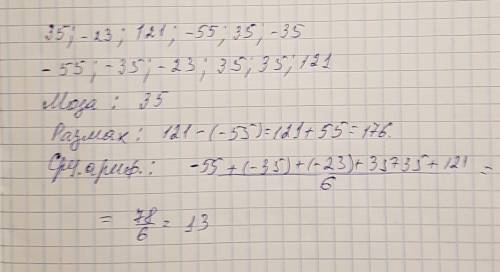 35; -23; 121; -55; 35; -35
-55; -35; -23; 35; 35; 121
Мода: 35
Размах: 121-(-55)=121+55=176.
Срд.ариф.: -55+(-35)+(-23)+35+35+121/6 =
= 78/6 = 13